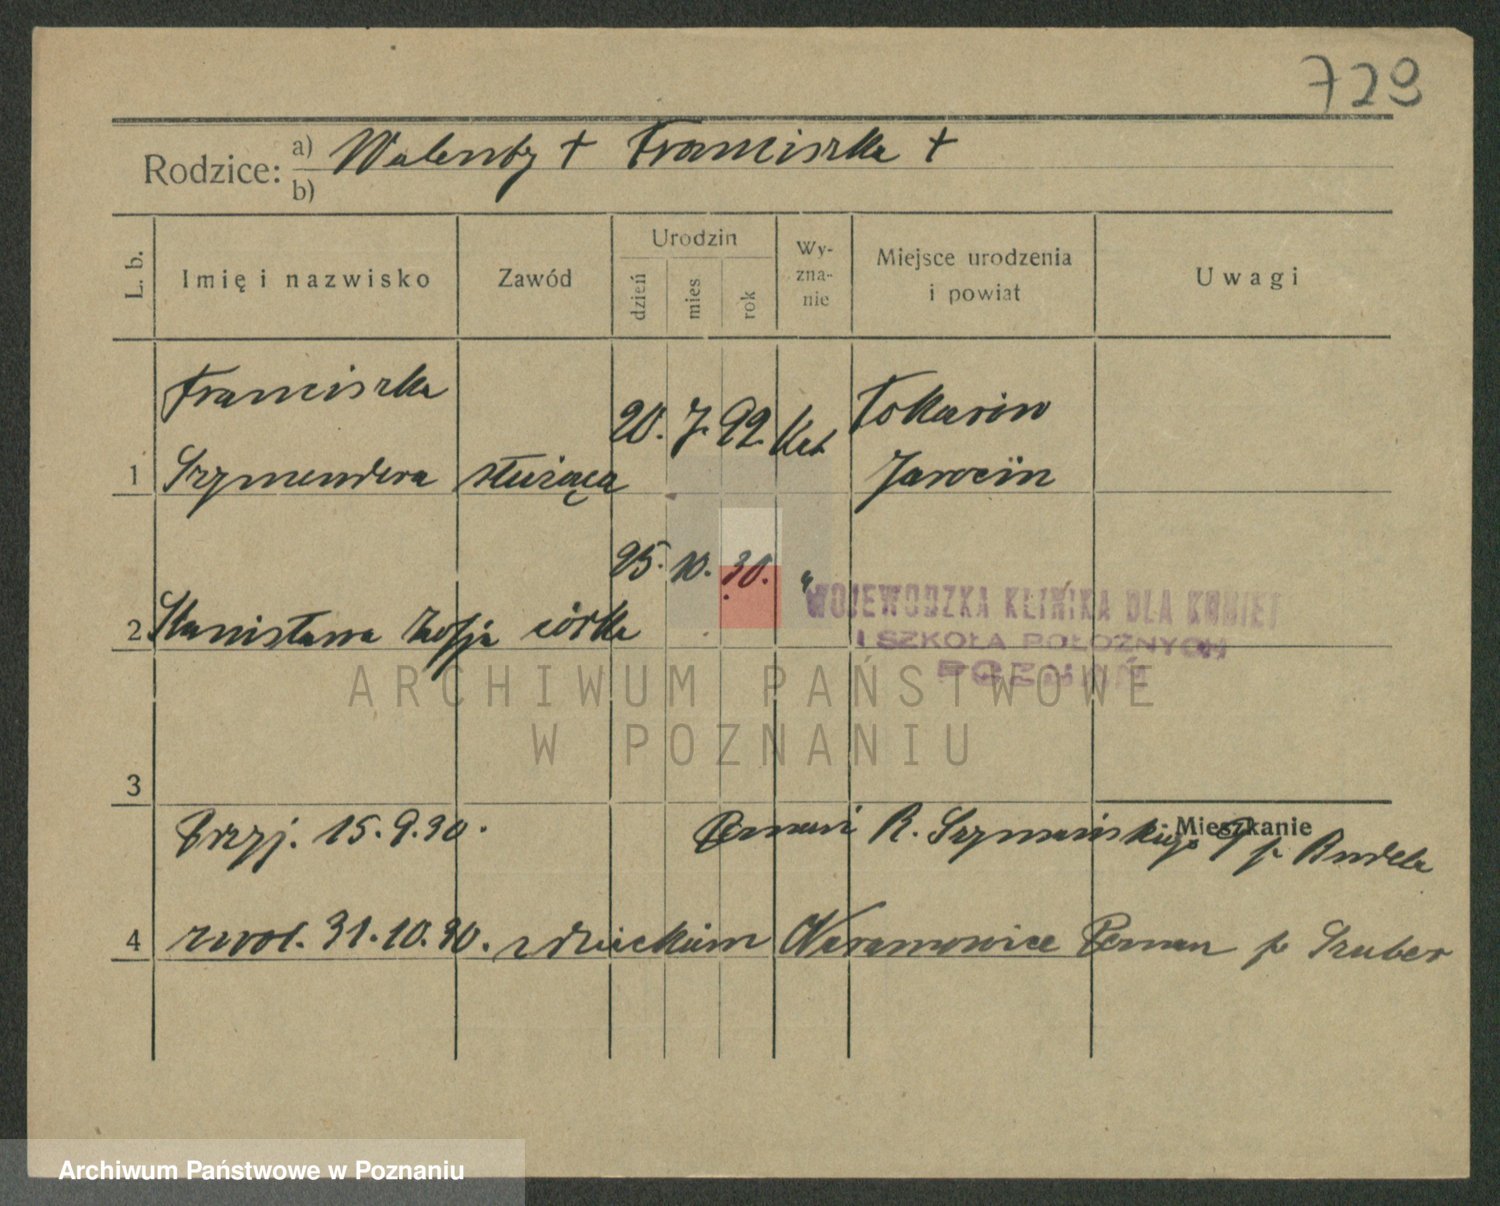 729
Rodzice: a) Walenty + Franciszka +
b)
L. b. Imię i nazwisko Zawód Urodzin dzień mies rok Wy-zna-nie Miejsce urodzenia i powiat Uwagi
Franciszka 20. 7. 92. Kat Tokarów
1 Szymendera służąca Jarocin
25. 10. 30. "
WOJEWÓDZKA KLINIKA DLA KOBIET
2 Stanisława Zofja córka
I SZKOŁA POŁOŻNYCH
POZNAŃ
ARCHIWUM PAŃSTWOWE
W POZNANIU
3
Mieszkanie
Przyj. 15.9.30. Poznań R. Szymańskiego 9 p
4 zwol. 31.10.30. z dzieckiem Naramowice Poznań p Szuber
Archiwum Państwowe w Poznaniu